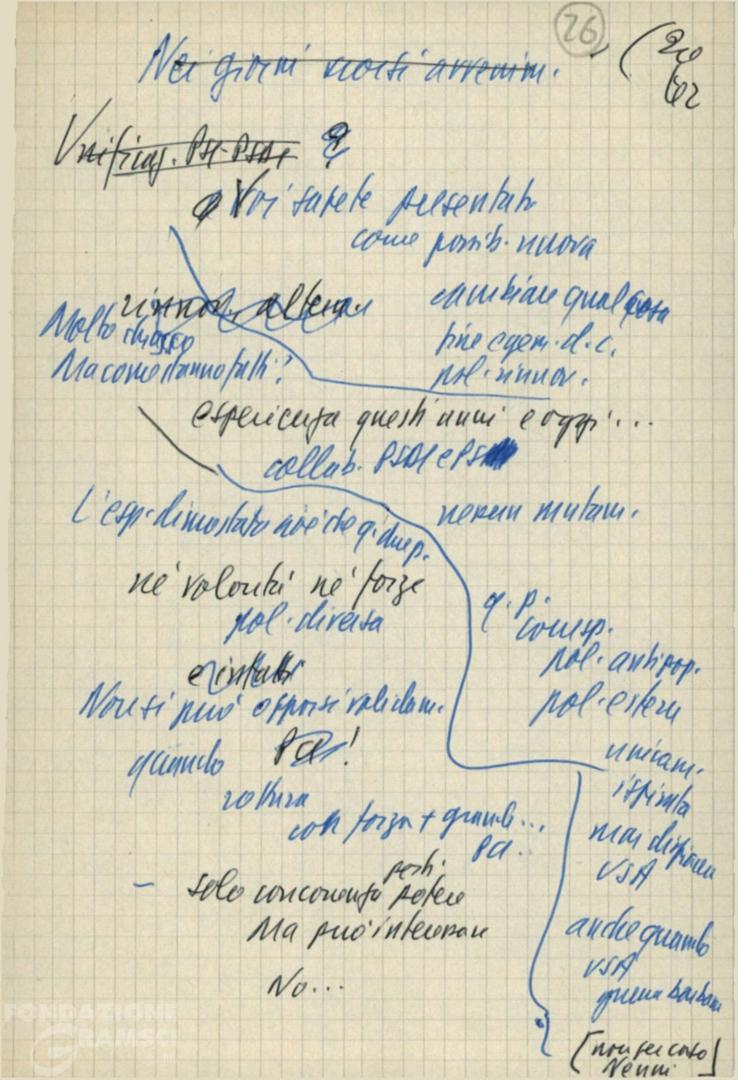 26
Nei giorni scorsi avvenim.
Unificaz. PSI-PSDI
Voi sarete presentati
come possib. nuova
rinnov. altern.
cambiare qualcosa
Molto chiasso
fine egem. d.c.
Ma come stanno fatti?
pol. rinnov.
esperienza questi anni e oggi...
collab. PSDI e PSI
nessun mutam.
L'esp. dimostrato
né volontà né forze
pol. diversa
q. p.
comsp.
pol. antipop.
e infatti
Non si può opporsi validam.
pol. estera
quando PCI!
unicam.
rottura
ispirata
con forza + grande...
PCI..
mai dispiacere
USA
posti
- solo concorrenza potere
Ma può interessare
anche quando
USA
guerra barbara
No...
[non per caso]
Nenni
FONDAZIONE
GRAMSCI